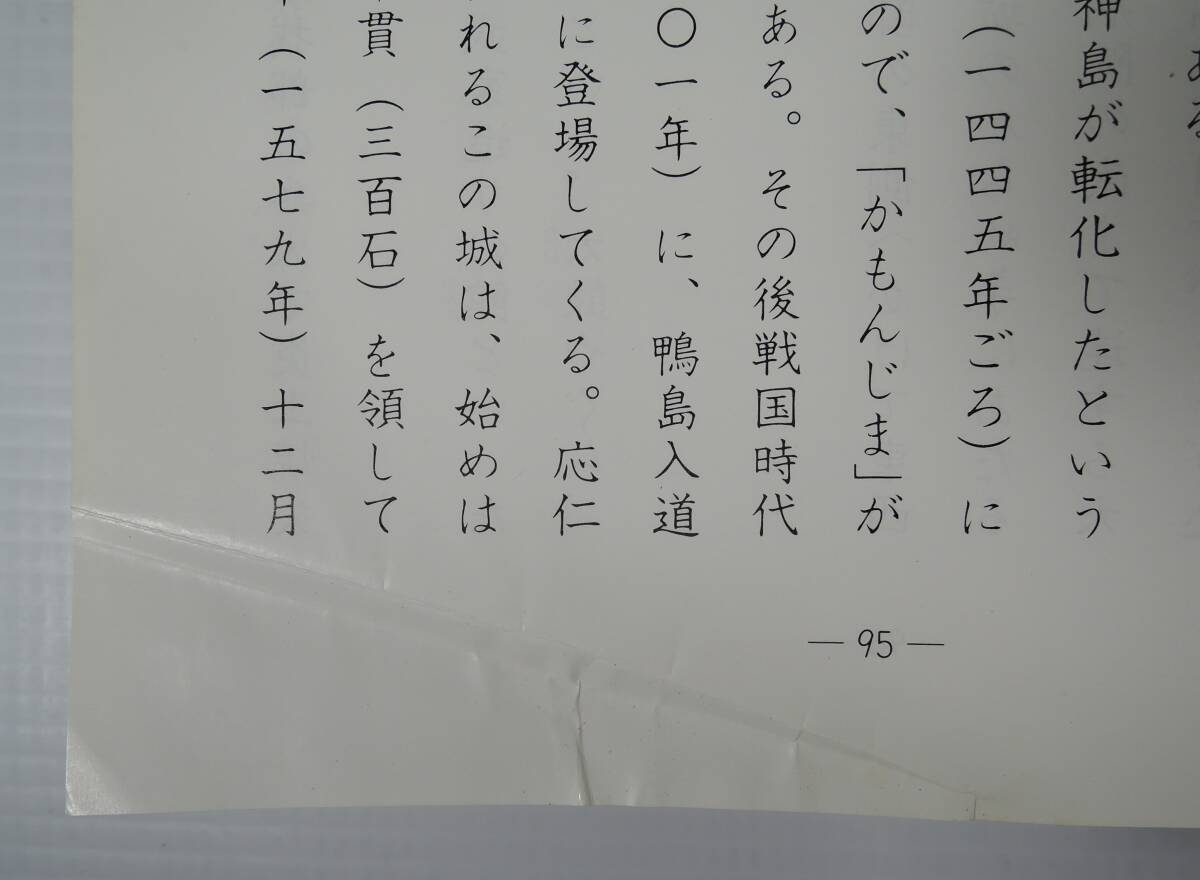 ある
神島が転化したという
（一四四五年ごろ）に
ので、「かもんじま」が
ある。その後戦国時代
〇一年）に、鴨島入道
に登場してくる。応仁
れるこの城は、始めは
貫（三百石）を領して
（一五七九年）十二月
—95—